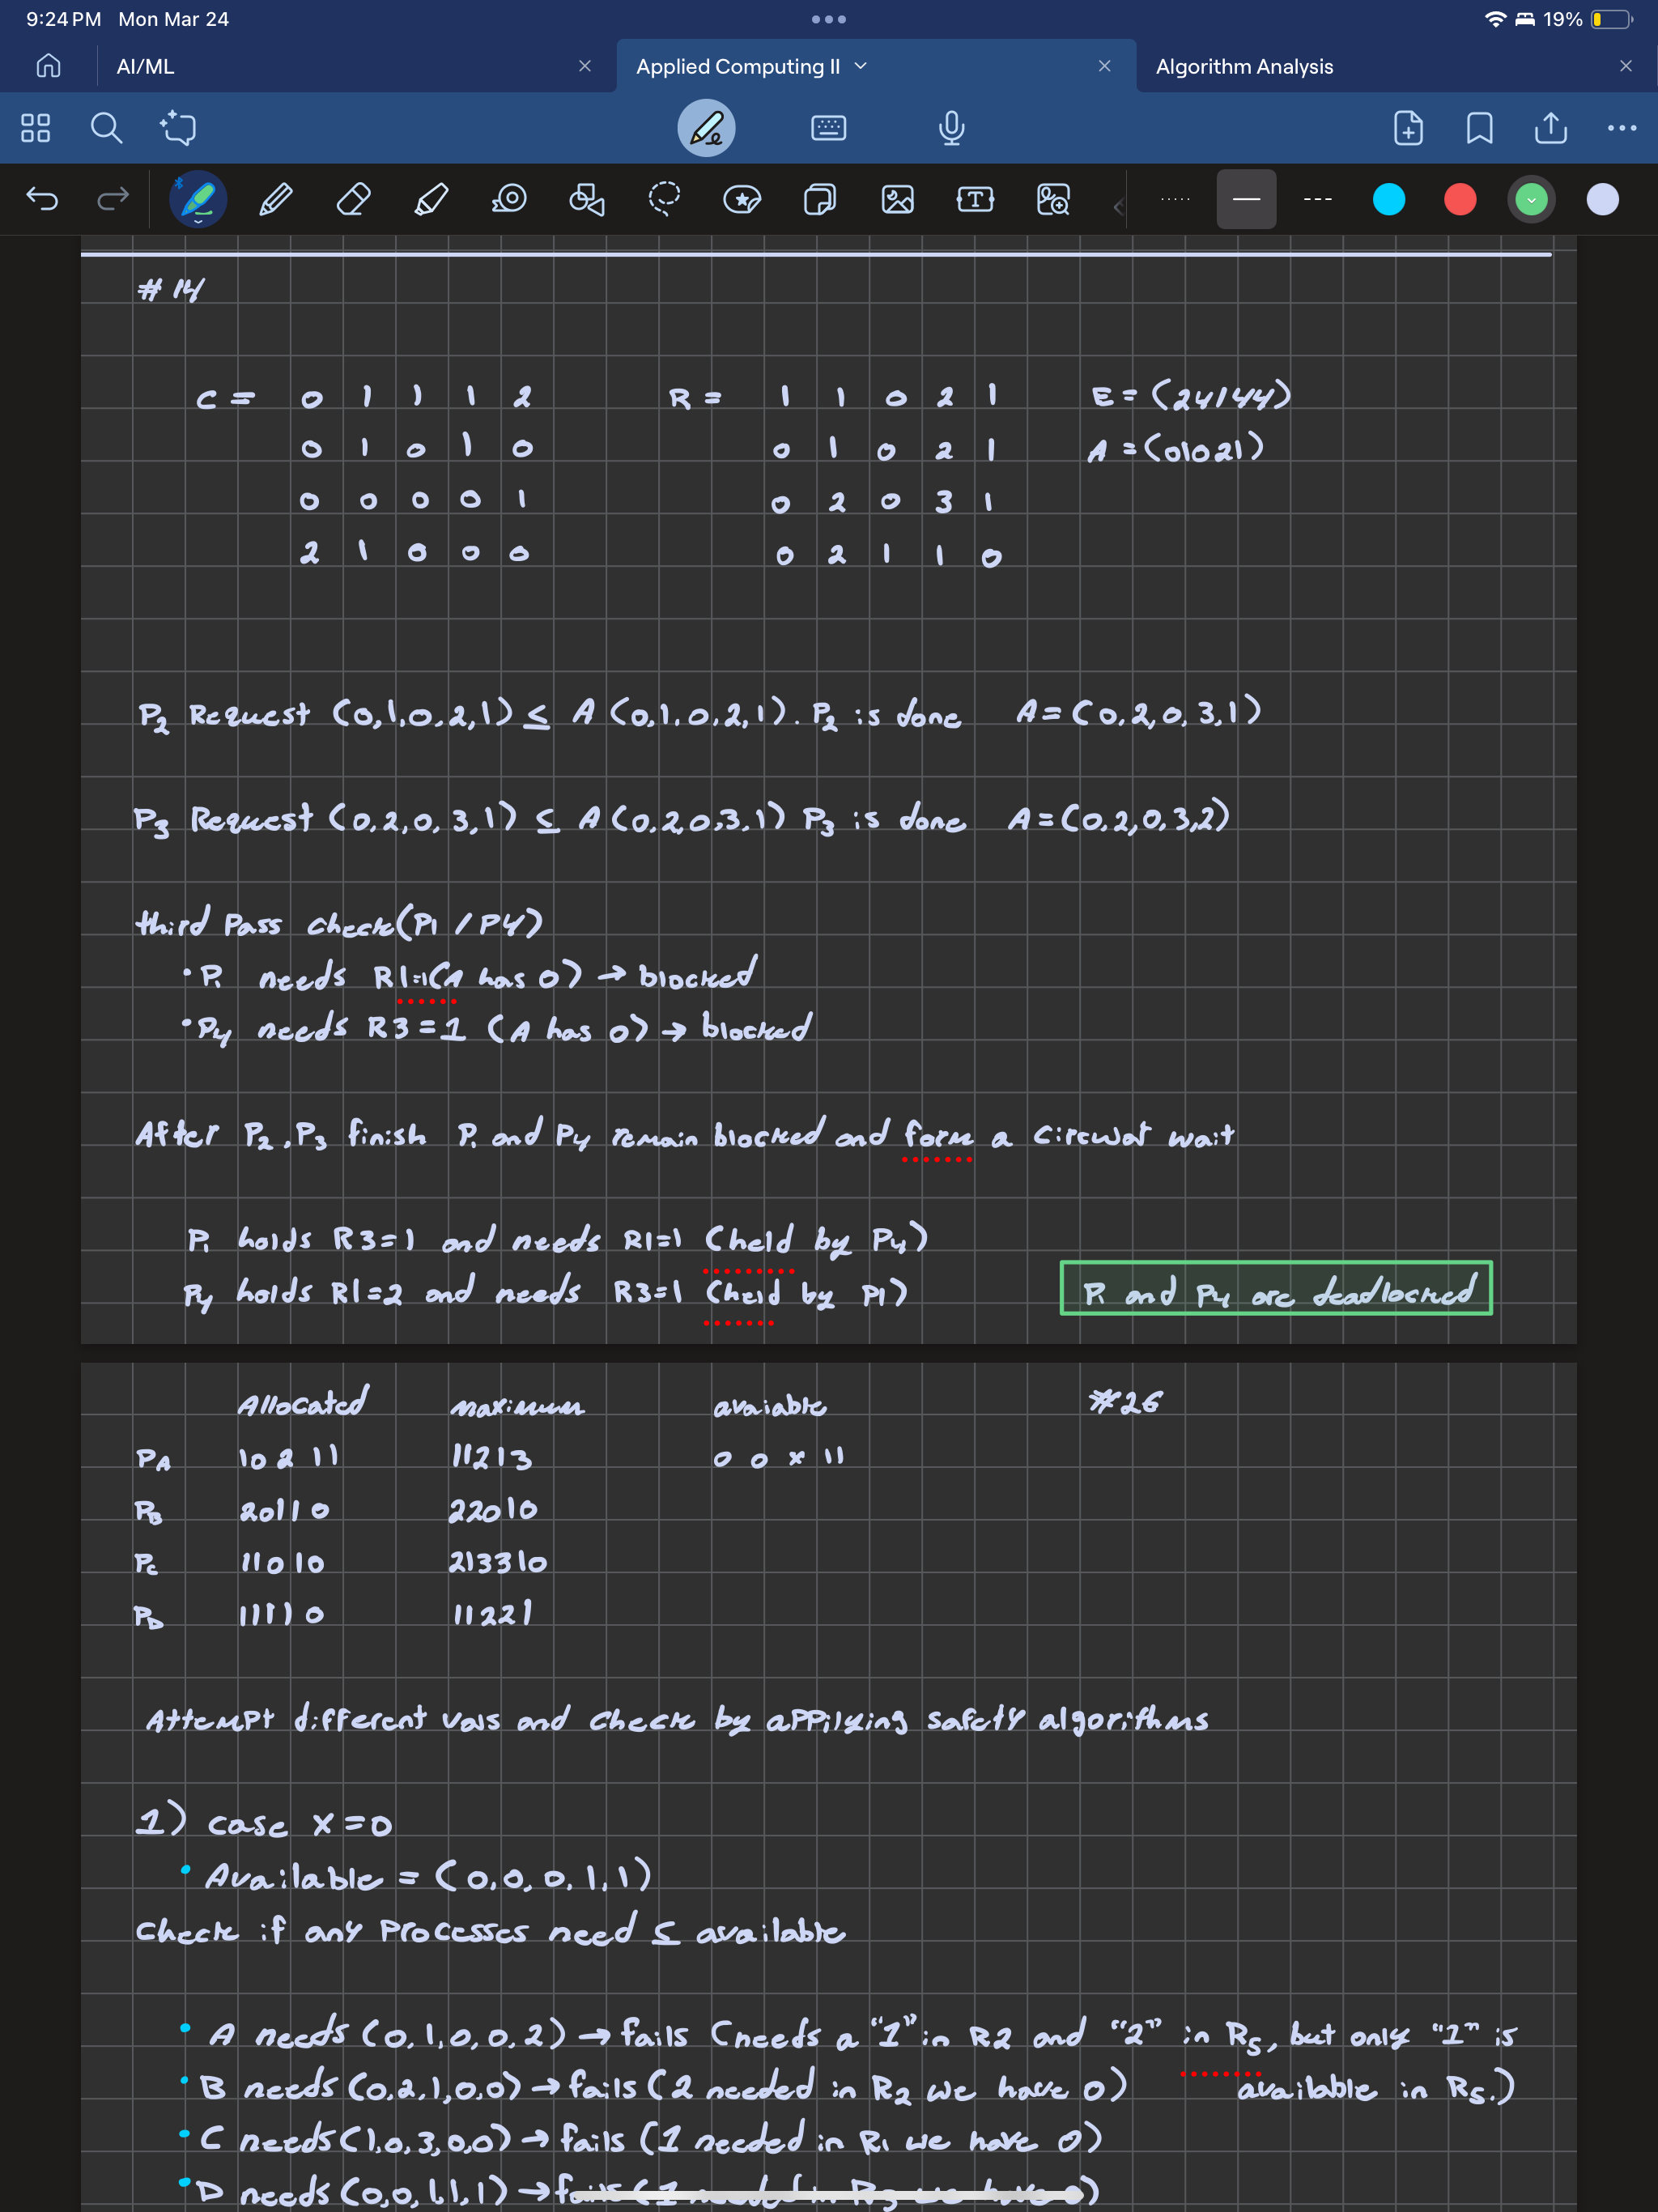 9:24 PM Mon Mar 24
19%
AI/ML
Applied Computing II
Algorithm Analysis
# 14
C = 0 1 1 1 2 R = 1 1 0 2 1 E = (24144)
0 1 0 1 0 0 1 0 2 1 A = (01021)
0 0 0 0 1 0 2 0 3 1
2 1 0 0 0 0 2 1 1 0
P2 Request (0,1,0,2,1) ≤ A (0,1,0,2,1). P2 is done A = (0,2,0,3,1)
P3 Request (0,2,0,3,1) ≤ A (0,2,0,3,1) P3 is done A = (0,2,0,3,2)
third Pass check (P1 / P4)
• P1 needs R1=1 (A has 0) → blocked
• P4 needs R3 = 1 (A has 0) → blocked
After P2, P3 finish P1 and P4 remain blocked and form a circular wait
P1 holds R3=1 and needs R1=1 (held by P4)
P4 holds R1=2 and needs R3=1 (held by P1)
P1 and P4 are deadlocked
Allocated maximum avaiable #26
PA 10211 11213 0 0 x 11
PB 20110 22010
PC 11010 213310
PD 11110 11221
Attempt different vals and check by appilying safety algorithms
1) case x = 0
• Available = (0,0,0,1,1)
Check if any Processes need ≤ available
• A needs (0,1,0,0,2) → fails (needs a "1" in R2 and "2" in R5, but only "1" is
available in R5.)
• B needs (0,2,1,0,0) → fails (2 needed in R2 we have 0)
• C needs (1,0,3,0,0) → fails (1 needed in R1 we have 0)
• D needs (0,0,1,1,1) → fails (1 needed in R3 we have 0)